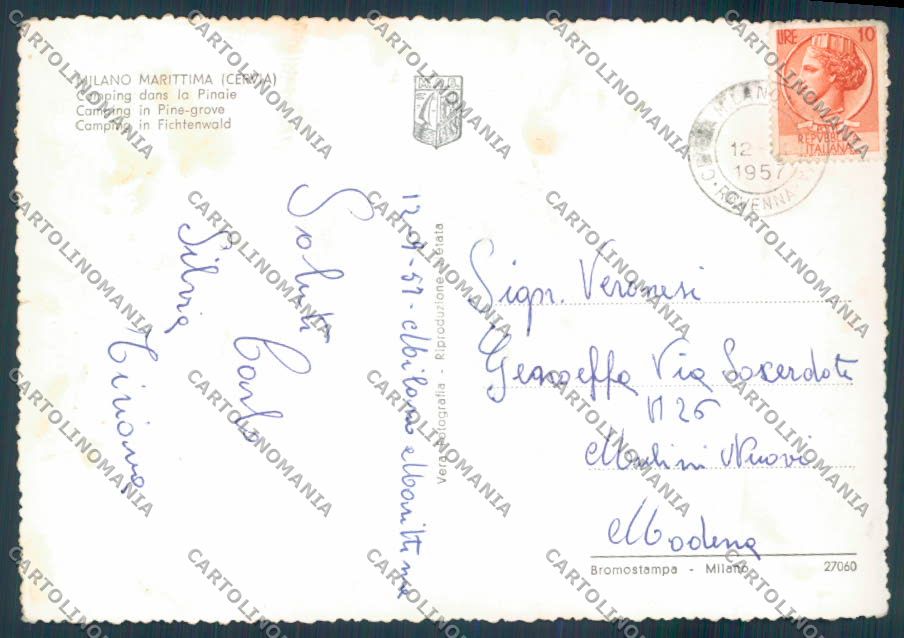 MILANO MARITTIMA (CERVIA)
Camping dans la Pinaie
Camping in Pine-grove
Camping in Fichtenwald
LIRE 10
REPVBBLICA
ITALIANA
MILANO
12
1957
RAVENNA
12-9-57- Milano Marittima
Saluti
Carlo
Silvia
Vera Fotografia - Riproduzione vietata
Sigr. Veronesi
Via Sacerdoti
N 26
Mulini Nuovi
Modena
Bromostampa - Milano
27060
CARTOLINOMANIA